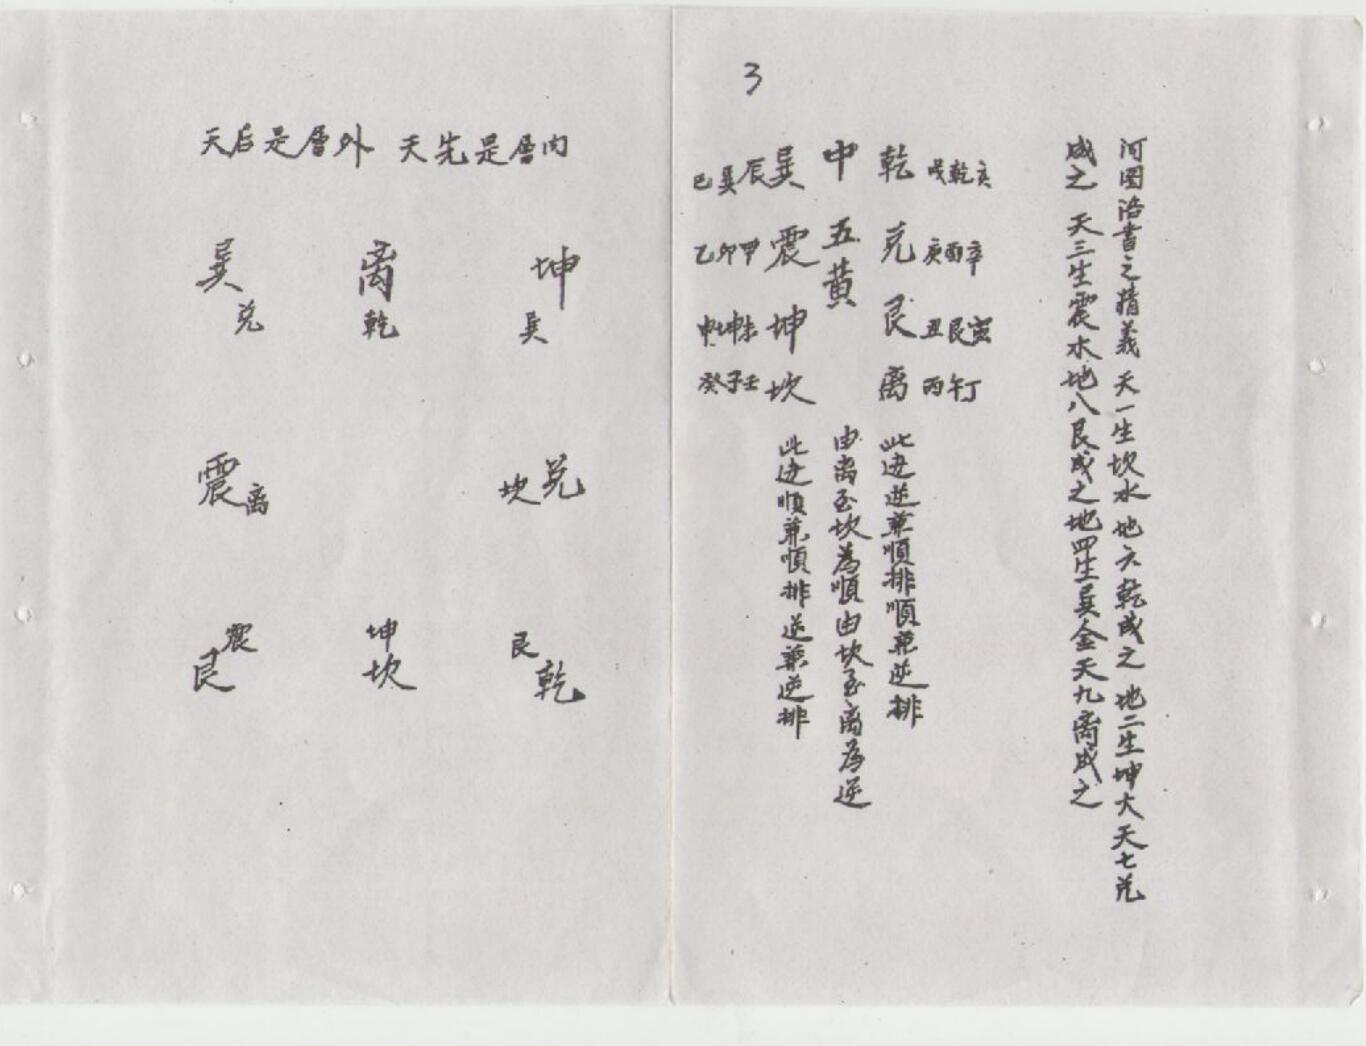 3
河圖洛書之精義 天一生坎水 地六乾成之 地二生坤大天七兌
成之 天三生震水地八艮成之地四生巽金天九离成之
戌乾亥
庚酉辛
丑艮寅
丙午丁
乾 兌 艮 离
此边逆兼順排順兼逆排
中 五黃
由离至坎為順由坎至离為逆
巽 震 坤 坎
此边順兼順排逆兼逆排
巳巽辰
乙卯甲
申坤未
癸子壬
天后是層外 天先是層内
巽 离 坤
兌 乾 巽
震离 坎兌
震 坤 艮
艮 坎 乾